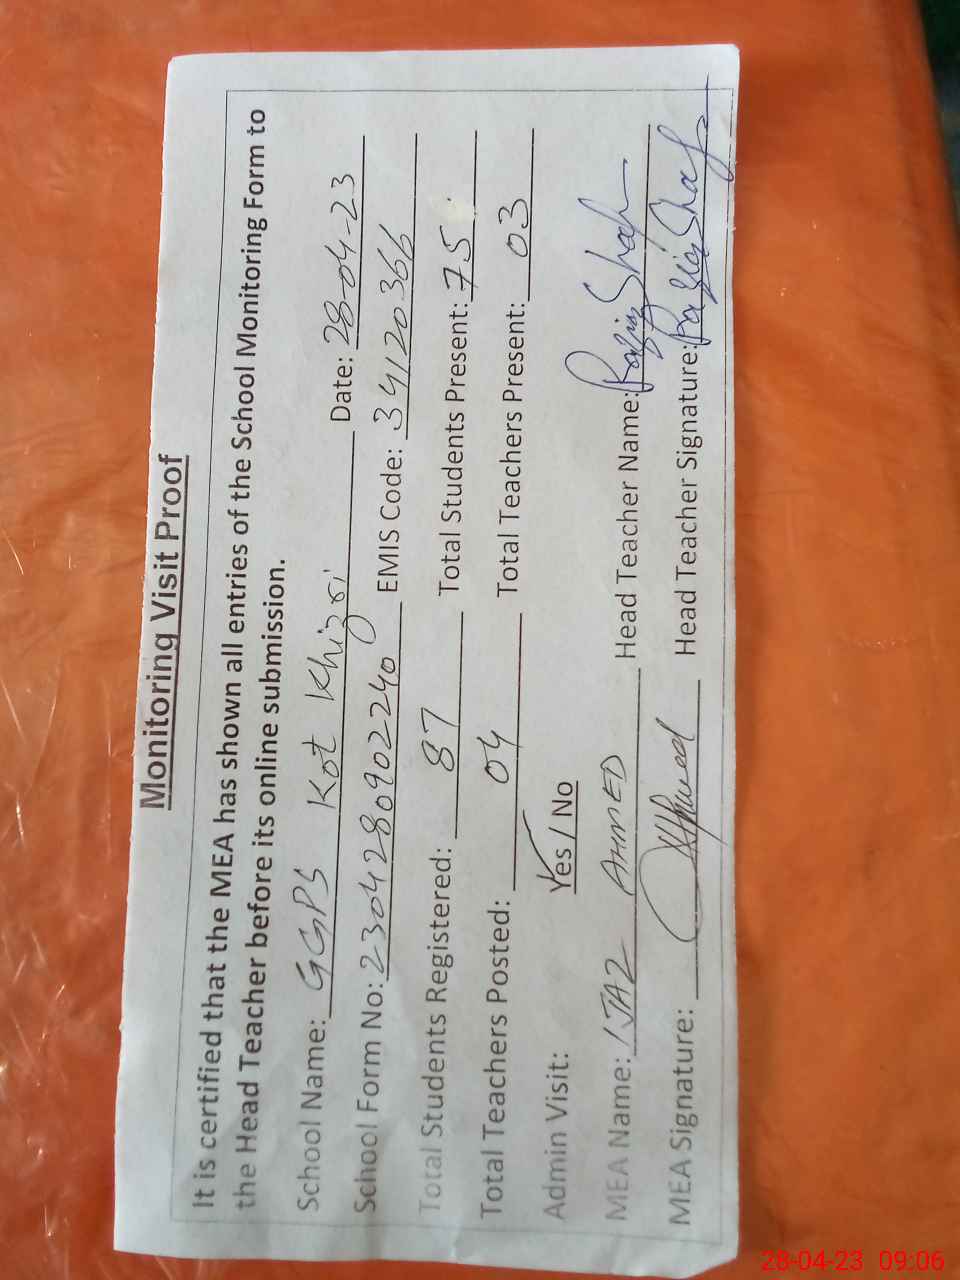 Monitoring Visit Proof
It is certified that the MEA has shown all entries of the School Monitoring Form to
the Head Teacher before its online submission.
School Name: GGPS Kot Khizri Date: 28-04-23
School Form No: 230428090 2240 EMIS Code: 34120366
Total Students Registered: 87 Total Students Present: 75
Total Teachers Posted: 04 Total Teachers Present: 03
Admin Visit: Yes / No
MEA Name: IJAZ AHMED Head Teacher Name: Razia Shafi
MEA Signature: Ahmed Head Teacher Signature: Razia Shafi
28-04-23 09:06